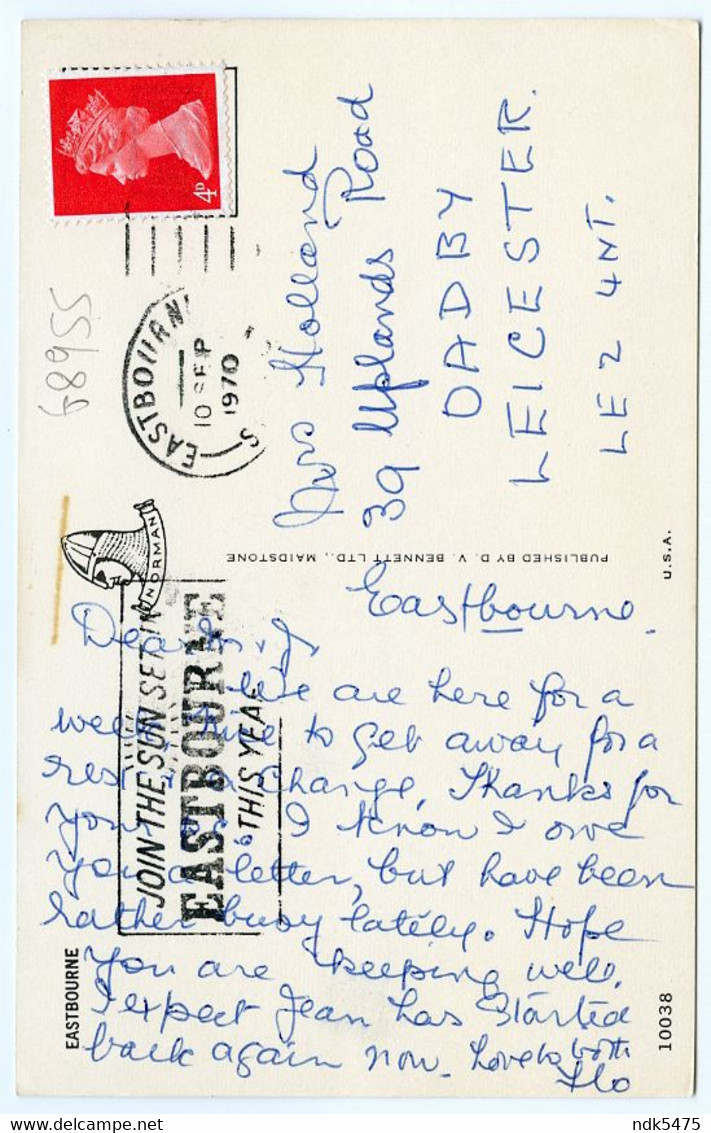 4D
EASTBOURNE
10 SEP
1970
S
68955
NORMAN
JOIN THE SUN SET IN
EASTBOURNE
THIS YEAR
Holland
39 Uplands Road
OADBY
LEICESTER.
LE2 4NT.
PUBLISHED BY D. V. BENNETT LTD., MAIDSTONE
U.S.A.
Eastbourne.
Dear
We are here for a
week, nice to get away for a
rest & a change, Thanks for
your I know I owe
you a letter, but have been
rather busy lately. Hope
you are keeping well.
I expect Jean has started
back again now. Love to both
Flo
EASTBOURNE
10038
www.delcampe.net
ndk5475